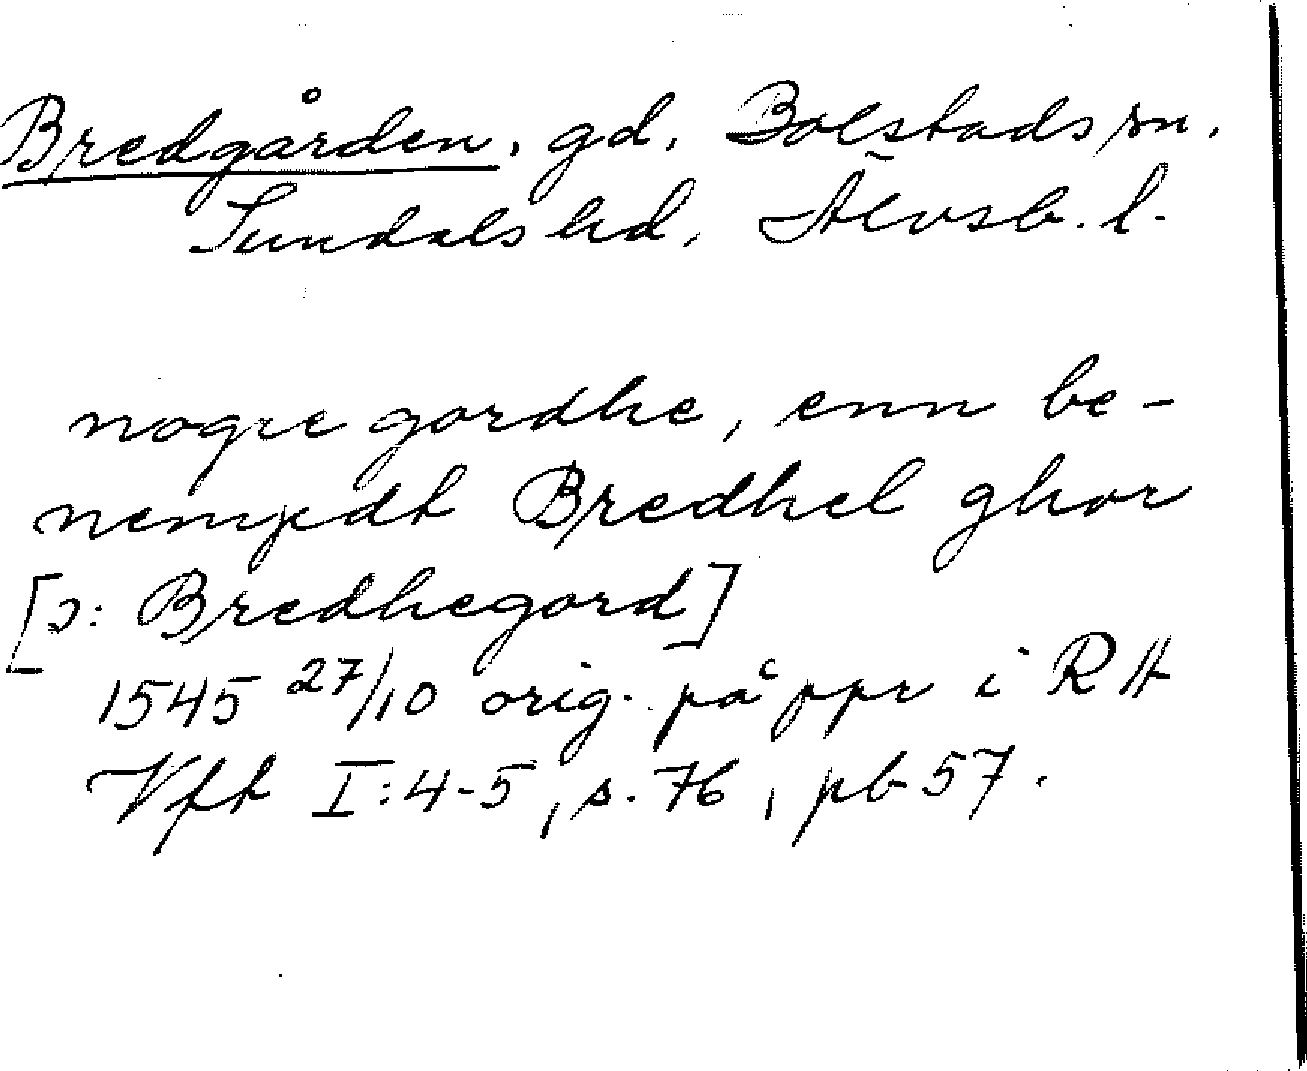 Bredgården, gd, Bolstads sn.
Sundals hd, Älvsb. l.
nogre gordhe, enn be-
nempdt Bredhel ghor
[ɔ: Bredhegord]
1545 27/10 orig. på ppr i RA
Vft I:4-5, s. 76, pb 57.